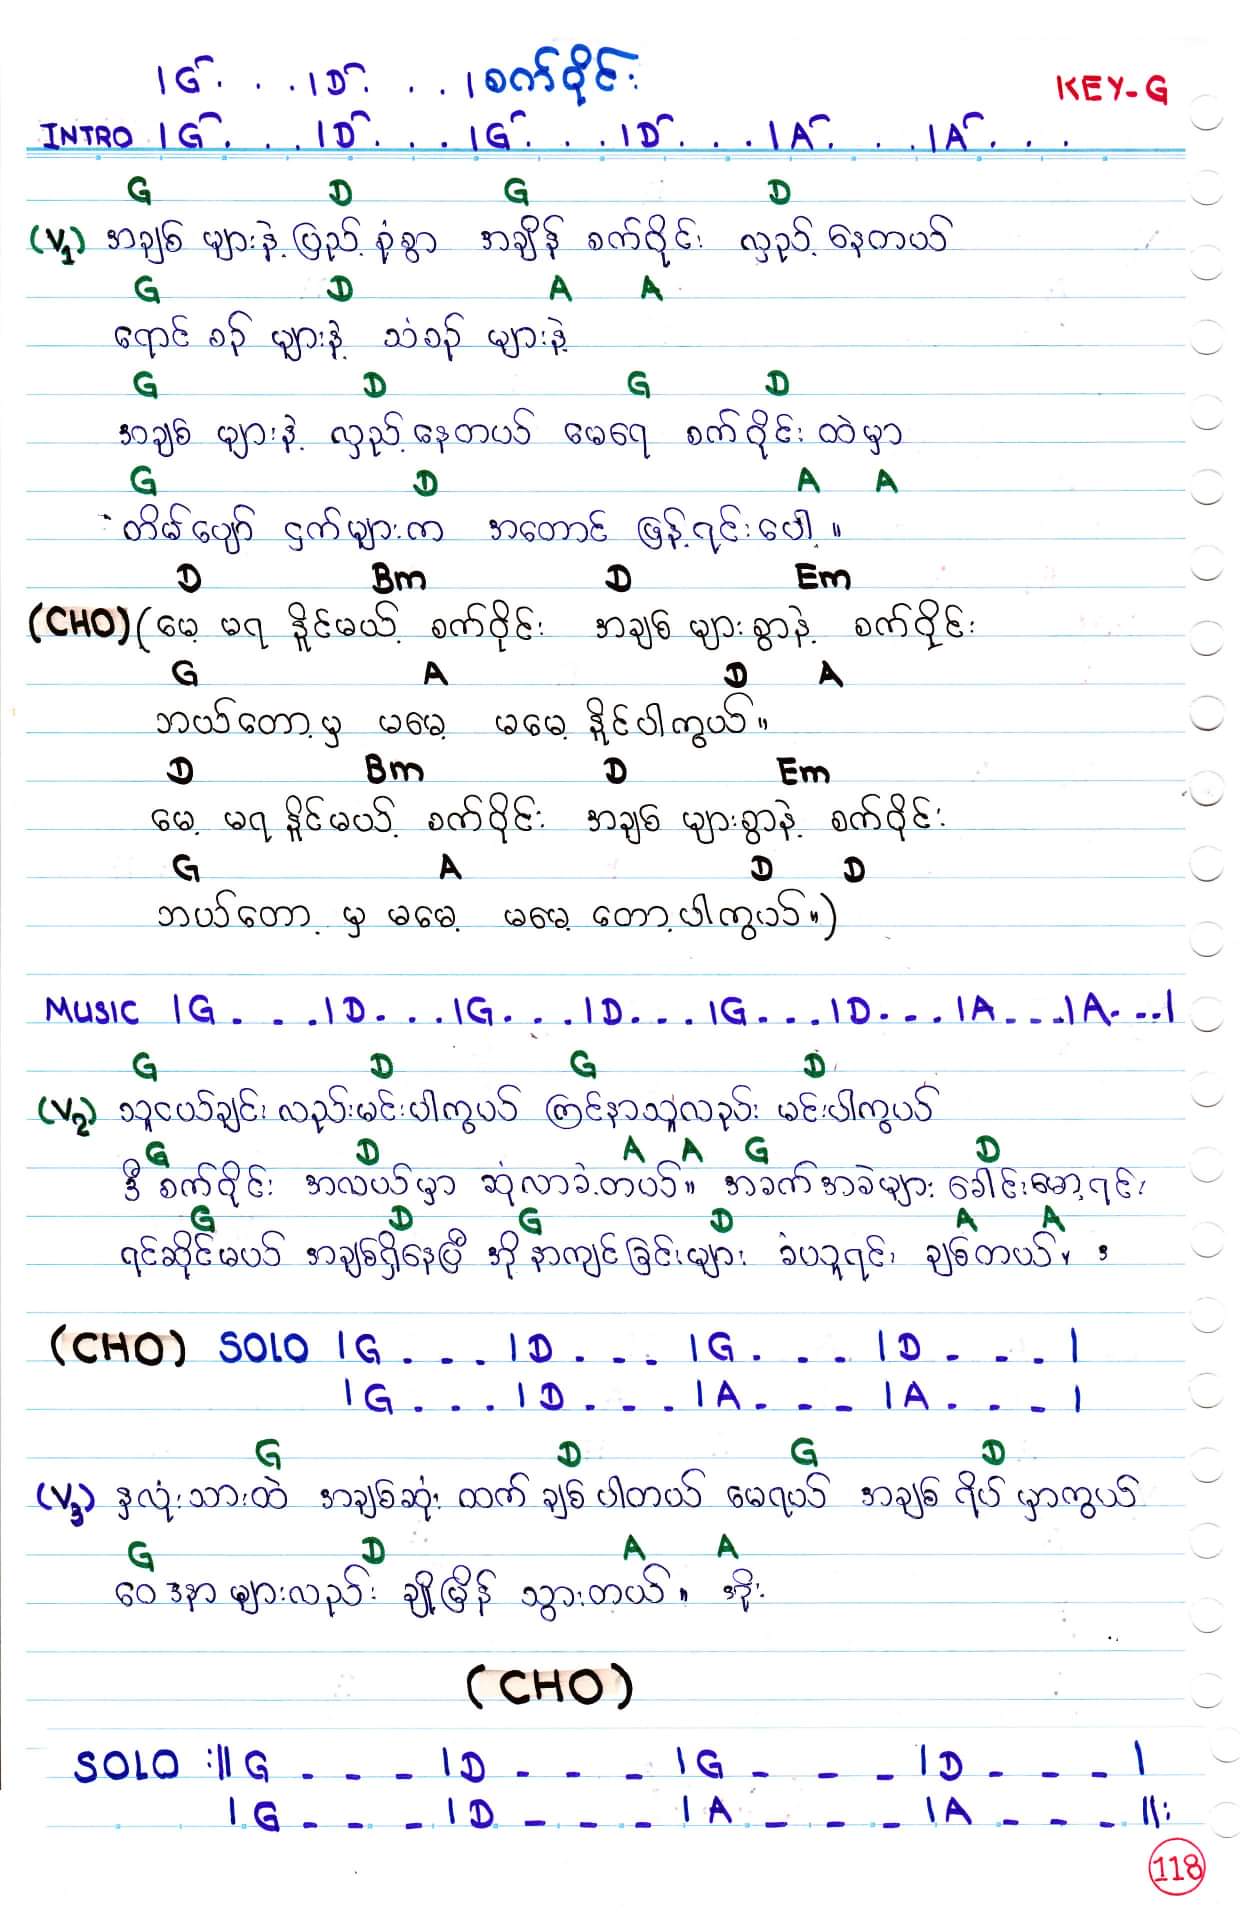 |G . . . |D . . . | စက်ဝိုင်း
KEY-G
INTRO |G . . . |D . . . |G . . . |D . . . |A . . . |A . . .
G D G D
(V1) အချစ် များနဲ့ ပြည့် စုံစွာ အချိန် စက်ဝိုင်း လှည့် နေတယ်
G D A A
ရောင် စဉ် များနဲ့ သံစဉ် များနဲ့
G D G D
အချစ် များနဲ့ လှည့် နေတယ် မေရေ စက်ဝိုင်း ထဲမှာ
G D A A
တိမ်ပျော် ငှက်များက အတောင် ဖြန့်ရင်းပေါ့ ။
D Bm D Em
(CHO) (မေ့ မရ နိူင်မယ့် စက်ဝိုင်း အချစ် များစွာနဲ့ စက်ဝိုင်း
G A D A
ဘယ်တော့မှ မမေ့ မမေ့ နိူင်ပါကွယ်။
D Bm D Em
မေ့ မရ နိူင်မယ့် စက်ဝိုင်း အချစ် များစွာနဲ့ စက်ဝိုင်း
G A D D
ဘယ်တော့ မှ မမေ့ မမေ့ တော့ပါကွယ်။)
MUSIC |G . . . |D . . . |G . . . |D . . . |G . . . |D . . . |A . . . |A . . . |
G D G D
(V2) သူငယ်ချင်း လည်းမင်းပါကွယ် ကြင်နာသူလည်း မင်းပါကွယ်
G D A A G D
ဒီ စက်ဝိုင်း အလယ်မှာ ဆုံလာခဲ့တယ်။ အခက်အခဲများ ခေါင်းမော့ရင်း
G D G D A A
ရင်ဆိုင်မယ် အချစ်ရှိနေပြီ အို နာကျင်ခြင်းများ ခံယူရင်း ချစ်တယ်။
(CHO) SOLO |G . . . |D . . . |G . . . |D . . . |
|G . . . |D . . . |A . . . |A . . . |
G D G D
(V3) နှလုံးသားထဲ အချစ်ဆုံး ထက် ချစ်ပါတယ် မေရယ် အချစ် ရိပ် မှာကွယ်
G D A A
ဝေဒနာများလည်း ချိုမြိန် သွားတယ်။ အိုး
(CHO)
SOLO :||G - - - |D - - - |G - - - |D - - - |
|G - - - |D - - - |A - - - |A - - - ||:
118